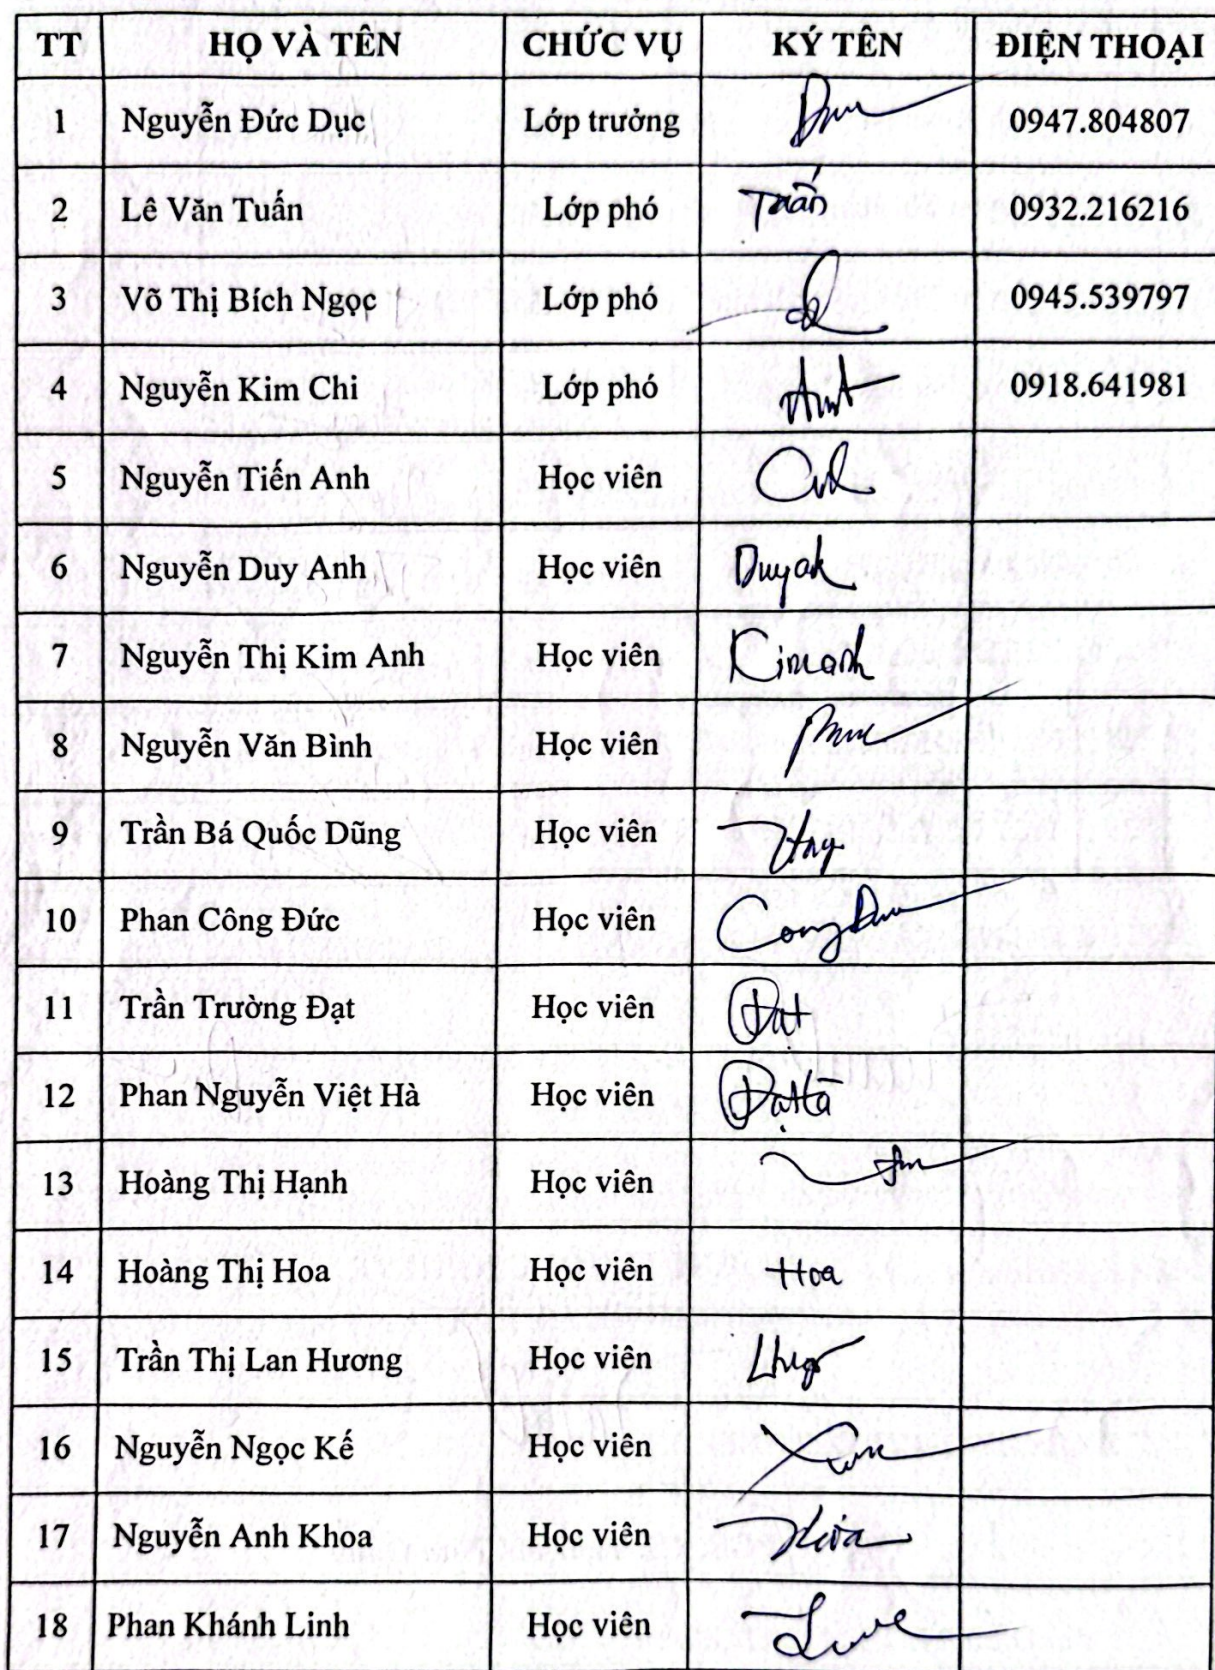 TT HỌ VÀ TÊN CHỨC VỤ KÝ TÊN ĐIỆN THOẠI
1 Nguyễn Đức Dục Lớp trưởng 0947.804807
2 Lê Văn Tuấn Lớp phó Tuấn 0932.216216
3 Võ Thị Bích Ngọc Lớp phó 0945.539797
4 Nguyễn Kim Chi Lớp phó 0918.641981
5 Nguyễn Tiến Anh Học viên
6 Nguyễn Duy Anh Học viên
7 Nguyễn Thị Kim Anh Học viên Kimanh
8 Nguyễn Văn Bình Học viên
9 Trần Bá Quốc Dũng Học viên
10 Phan Công Đức Học viên
11 Trần Trường Đạt Học viên Đạt
12 Phan Nguyễn Việt Hà Học viên
13 Hoàng Thị Hạnh Học viên
14 Hoàng Thị Hoa Học viên Hoa
15 Trần Thị Lan Hương Học viên
16 Nguyễn Ngọc Kế Học viên
17 Nguyễn Anh Khoa Học viên
18 Phan Khánh Linh Học viên